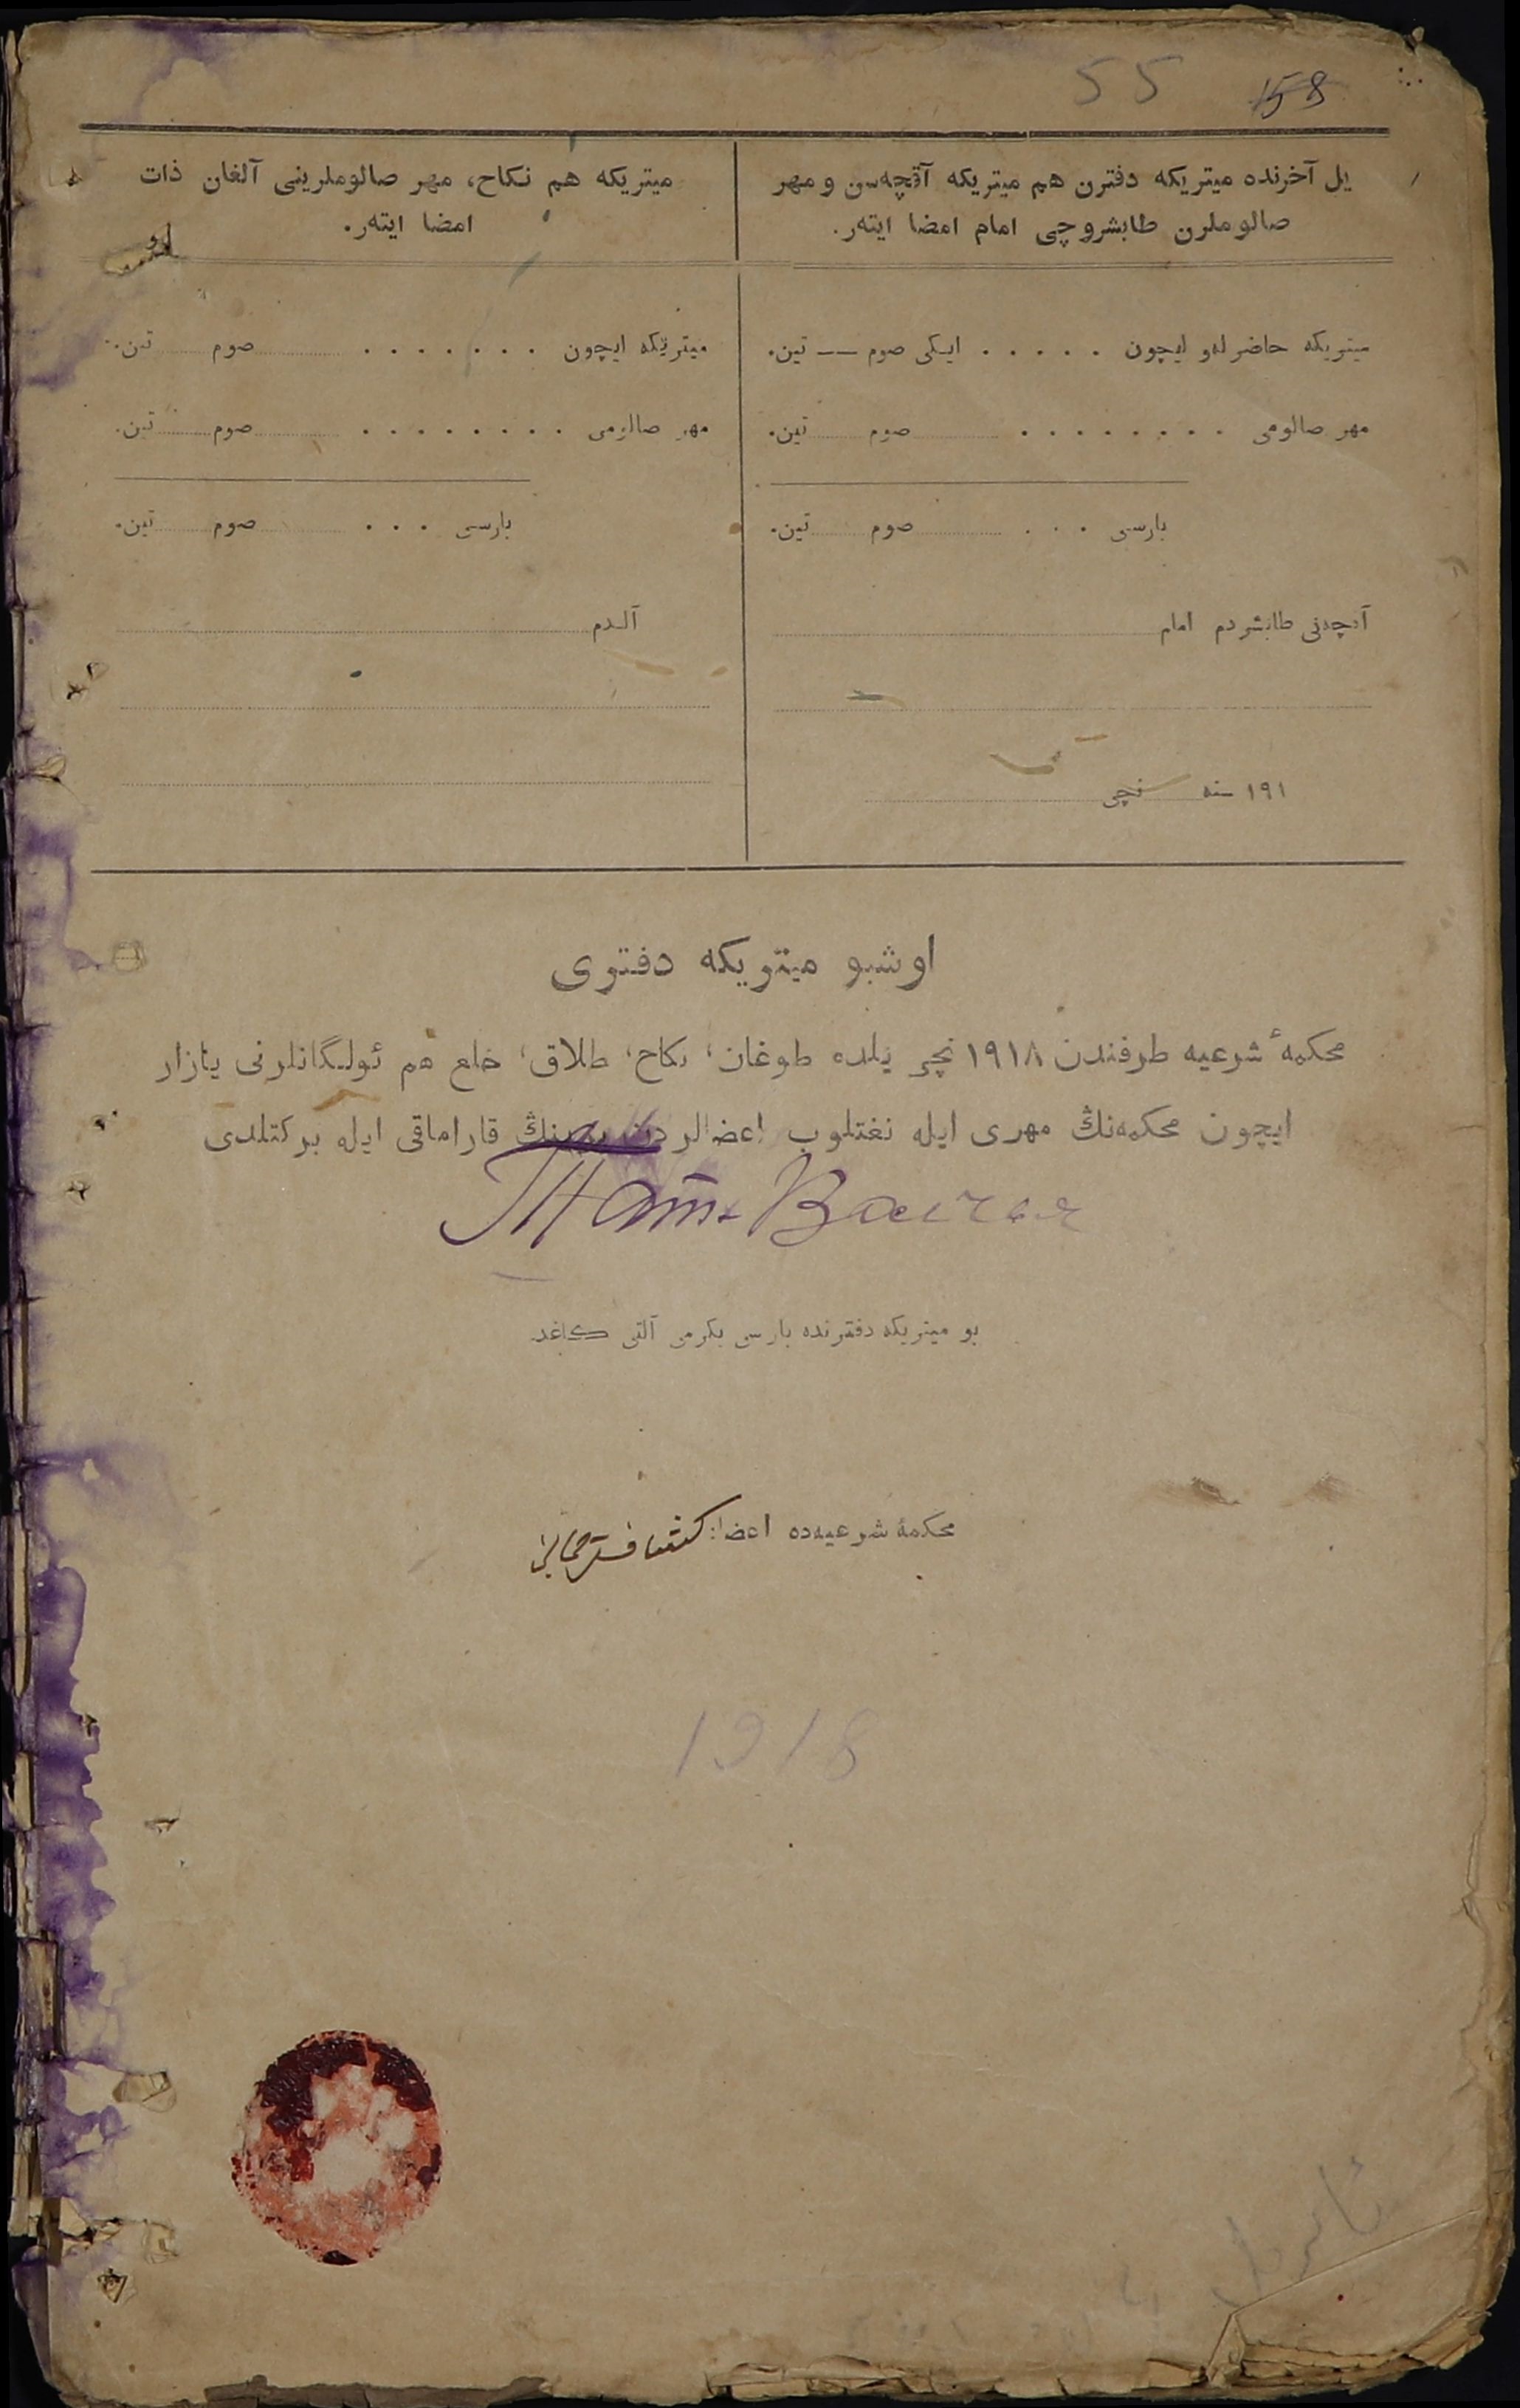 55 158
يل آخرنده ميتريكه دفترن هم ميتريكه آقچه‌سن و مهر
صالوملرن طابشروچى امام امضا ايته‌ر.
ميتريكه حاضرله‌و ايچون . . . . . ايكى صوم — تين.
مهر صالومى . . . . . . . . صوم تين.
بارسى . . . صوم تين.
آقچه‌نى طابشردم امام
١٩١ سنه نچى
ميتريكه هم نكاح، مهر صالوملرينى آلغان ذات
امضا ايته‌ر.
ميتريكه ايچون . . . . . . . صوم تين.
مهر صالومى . . . . . . . . صوم تين.
بارسى . . . صوم تين.
آلدم
اوشبو ميتريكه دفترى
محكمهٔ شرعيه طرفندن ١٩١٨ نچى يلده طوغان، نكاح، طلاق، خلع هم ئولگانلرنى يازار
ايچون محكمه‌نڭ مهرى ايله نغتلوب اعضالردن برينڭ قاراماقى ايله بركتلدى
بو ميتريكه دفترنده بارسى يكرمى آلتى كاغد.
محكمهٔ شرعيه‌ده اعضا:
1918